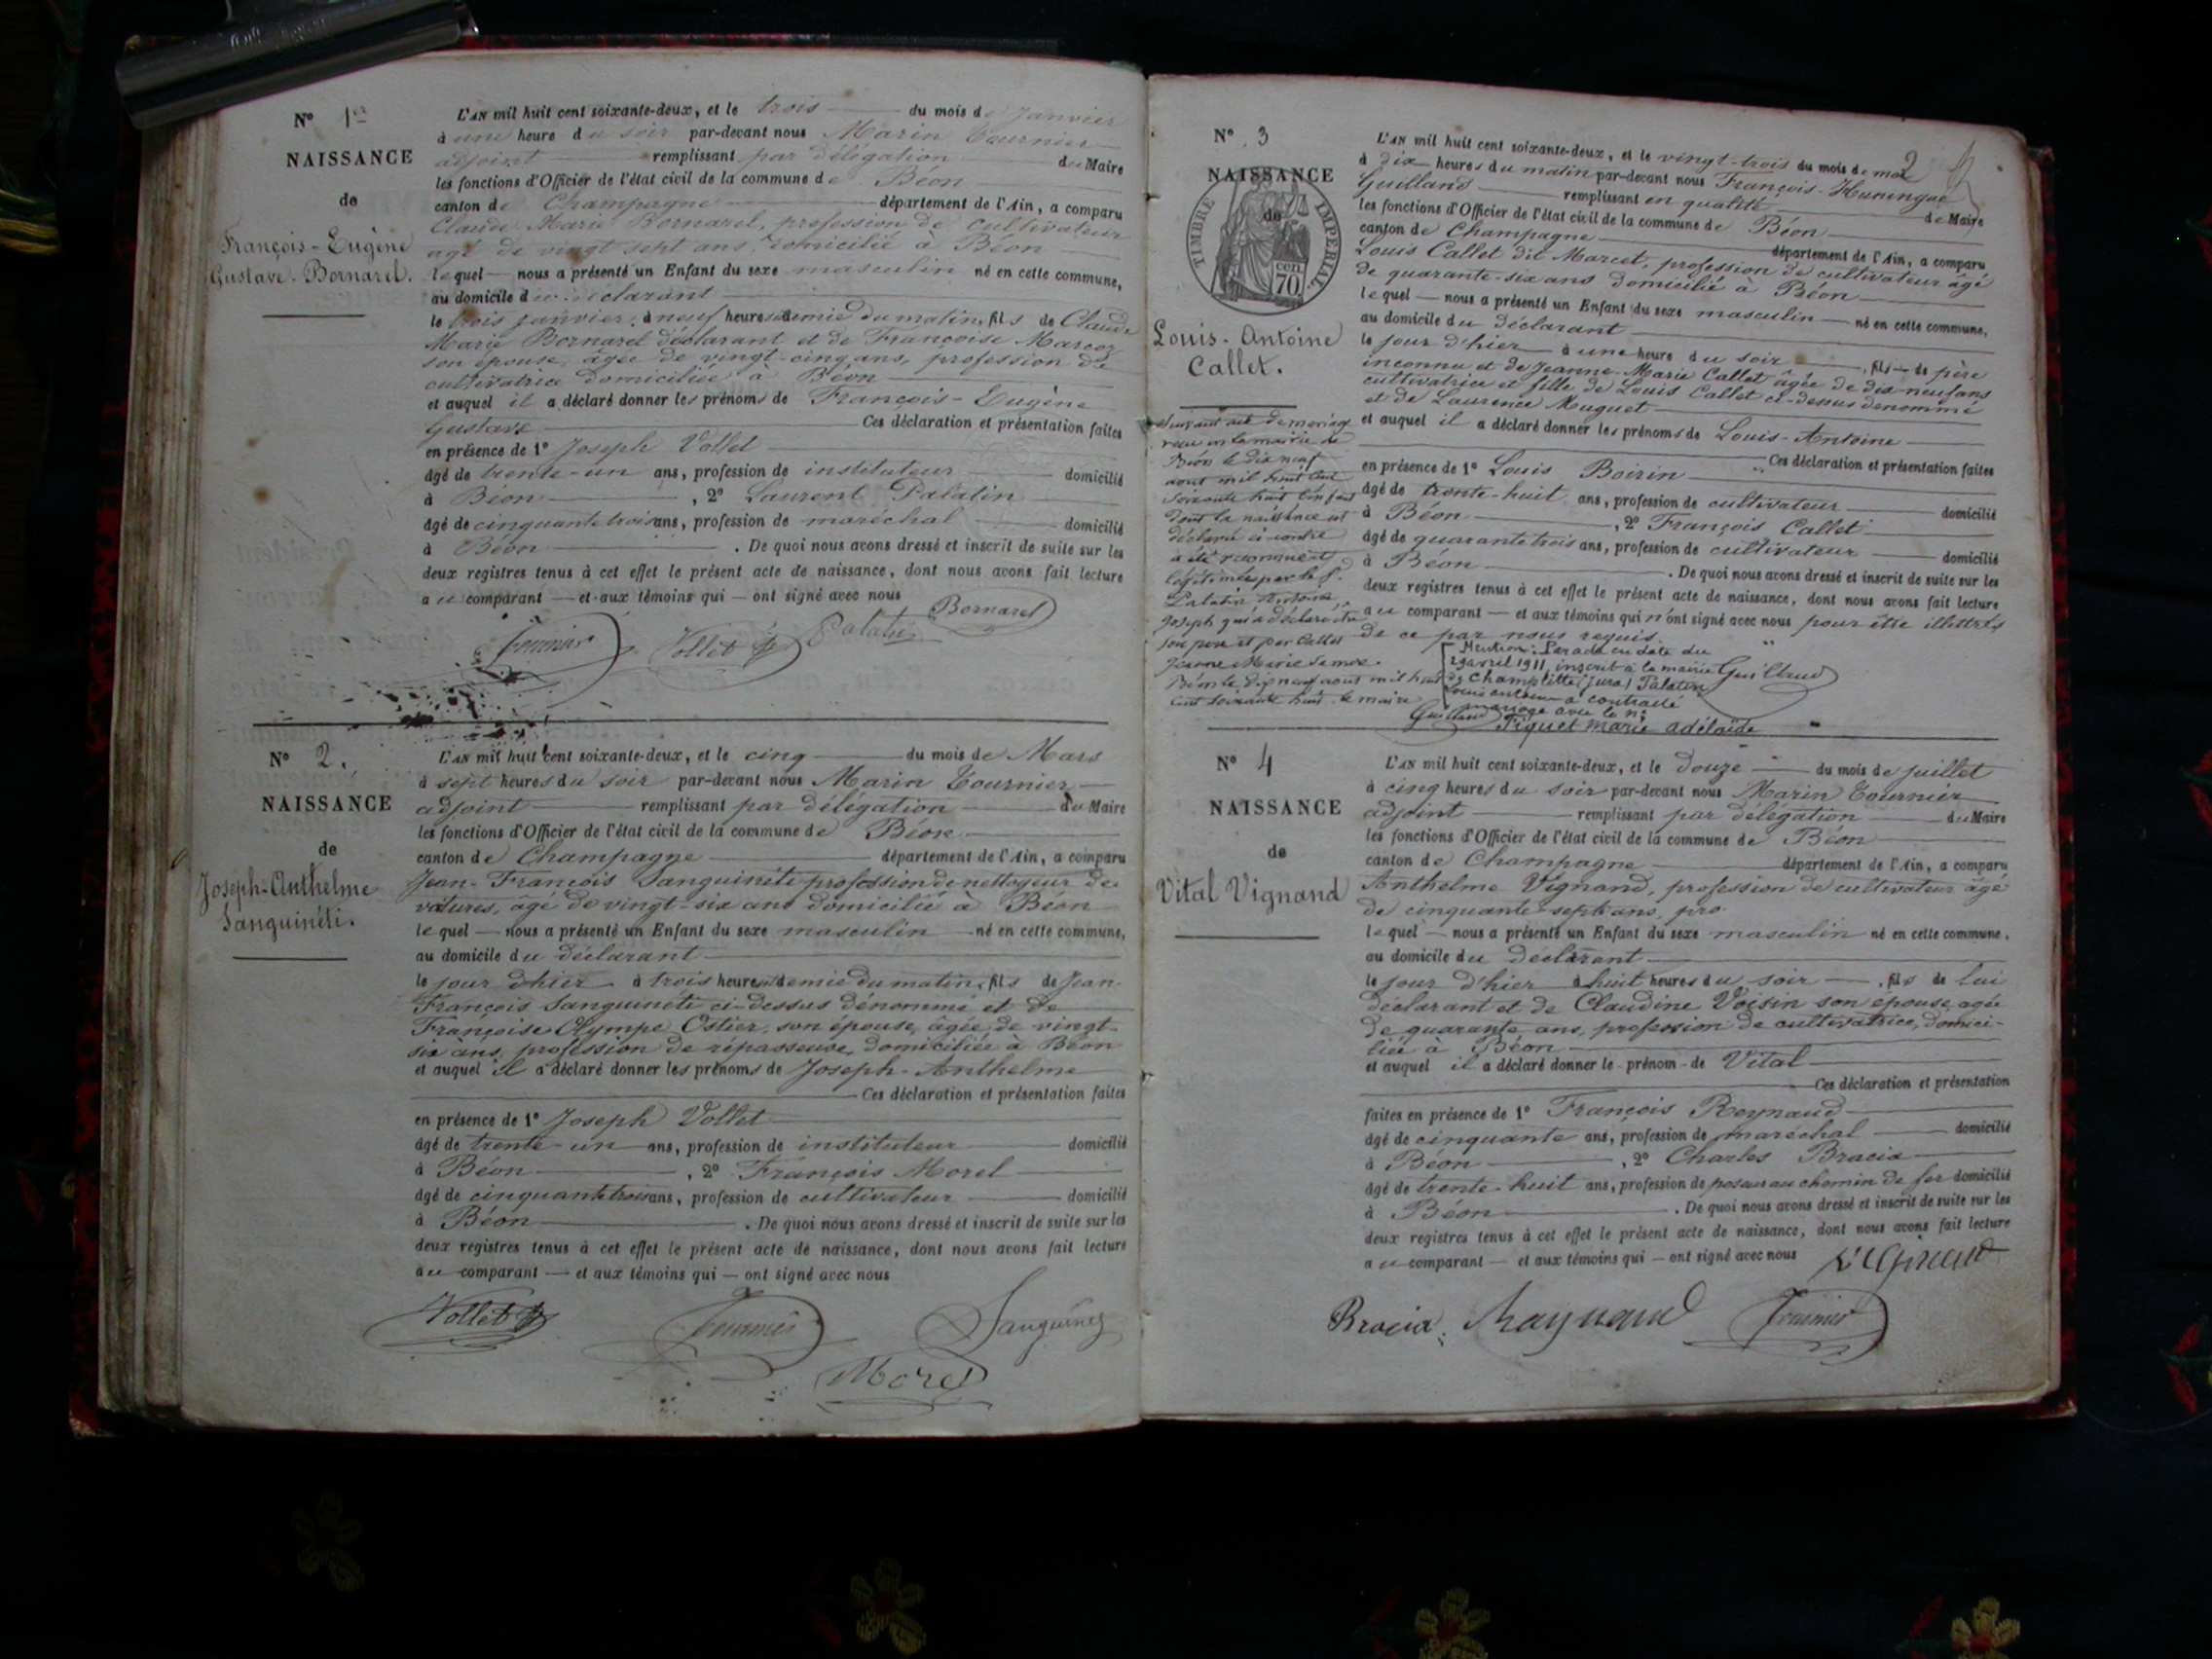 N° 1er
NAISSANCE
de
François-Eugène
Gustave Bornarel.
L'AN mil huit cent soixante-deux, et le trois du mois de Janvier
à une heure du soir par-devant nous Marin Tournier
adjoint remplissant par délégation du Maire
les fonctions d'Officier de l'état civil de la commune de Béon
canton de Champagne département de l'Ain, a comparu
Claude Marie Bornarel, profession de cultivateur
agé de vingt sept ans, domicilié à Béon
lequel nous a présenté un Enfant du sexe masculin né en cette commune,
au domicile du déclarant
le trois janvier, à neuf heures et demie du matin, fils de Claude
Marie Bornarel déclarant et de Françoise Marcoz
son épouse, âgée de vingt-cinq ans, profession de
cultivatrice domiciliée à Béon
et auquel il a déclaré donner les prénoms de François-Eugène
Gustave Ces déclaration et présentation faites
en présence de 1° Joseph Vollet
âgé de trente-un ans, profession de instituteur domicilié
à Béon, 2° Laurent Palatin
âgé de cinquante trois ans, profession de maréchal domicilié
à Béon. De quoi nous avons dressé et inscrit de suite sur les
deux registres tenus à cet effet le présent acte de naissance, dont nous avons fait lecture
au comparant et aux témoins qui ont signé avec nous
Bornarel
Tournier Vollet Palatin
N° 2.
NAISSANCE
de
Joseph-Anthelme
Sanguinéti.
L'AN mil huit cent soixante-deux, et le cinq du mois de Mars
à sept heures du soir par-devant nous Marin Tournier,
adjoint remplissant par délégation du Maire
les fonctions d'Officier de l'état civil de la commune de Béon
canton de Champagne département de l'Ain, a comparu
Jean-François Sanguinéti profession de nettoyeur de
voitures, âgé de vingt-six ans domicilié à Béon
lequel nous a présenté un Enfant du sexe masculin né en cette commune,
au domicile du déclarant
le jour d'hier à trois heures et demie du matin, fils de Jean-
François Sanguinéti ci-dessus dénommé et de
Françoise Olympe Ostier, son épouse, âgée de vingt-
six ans, profession de répasseuse, domiciliée à Béon
et auquel il a déclaré donner les prénoms de Joseph-Anthelme
Ces déclaration et présentation faites
en présence de 1° Joseph Vollet
âgé de trente-un ans, profession de instituteur domicilié
à Béon, 2° François Morel
âgé de cinquante trois ans, profession de cultivateur domicilié
à Béon. De quoi nous avons dressé et inscrit de suite sur les
deux registres tenus à cet effet le présent acte de naissance, dont nous avons fait lecture
au comparant et aux témoins qui ont signé avec nous
Vollet Tournier Sanguinéti
Morel
2
N° 3
NAISSANCE
de
TIMBRE IMPERIAL
cen.
70
Louis-Antoine
Callet.
Suivant acte de mariage
reçu en la mairie de
Béon le dix neuf
août mil huit cent
soixante huit l'enfant
dont la naissance est
déclarée ci contre
a été reconnu et
légitimé par le s.
Palatin Antoine
Joseph qui a déclaré être
son père et par Callet
Jeanne Marie sa mère.
Béon le dix neuf août mil huit
cent soixante huit. le maire
Guilland
L'AN mil huit cent soixante-deux, et le vingt-trois du mois de mai
à dix heures du matin par-devant nous François-Huningue
Guilland remplissant en qualité de Maire
les fonctions d'Officier de l'état civil de la commune de Béon
canton de Champagne département de l'Ain, a comparu
Louis Callet dit Marcet, profession de cultivateur âgé
de quarante-six ans domicilié à Béon
lequel nous a présenté un Enfant du sexe masculin né en cette commune,
au domicile du déclarant
le jour d'hier à une heure du soir, fils de père
inconnu et de Jeanne-Marie Callet âgée de dix-neuf ans
cultivatrice et fille de Louis Callet ci-dessus dénommé
et de Laurence Muguet
et auquel il a déclaré donner les prénoms de Louis-Antoine
Ces déclaration et présentation faites
en présence de 1° Louis Boirin
âgé de trente-huit ans, profession de cultivateur domicilié
à Béon, 2° François Callet
âgé de quarante trois ans, profession de cultivateur domicilié
à Béon. De quoi nous avons dressé et inscrit de suite sur les
deux registres tenus à cet effet le présent acte de naissance, dont nous avons fait lecture
au comparant et aux témoins qui n'ont signé avec nous pour être illettrés
de ce par nous requis.
Mention: Par acte en date du
29 avril 1911, inscrit à la mairie
de Champlitte (Jura) Palatin
Louis antoine a contracté
mariage avec le n:
Piquet marie adélaïde
Guilland
N° 4
NAISSANCE
de
Vital Vignand
L'AN mil huit cent soixante-deux, et le douze du mois de juillet
à cinq heures du soir par-devant nous Marin Tournier
adjoint remplissant par délégation du Maire
les fonctions d'Officier de l'état civil de la commune de Béon
canton de Champagne département de l'Ain, a comparu
Anthelme Vignand, profession de cultivateur âgé
de cinquante-sept ans, pro
lequel nous a présenté un Enfant du sexe masculin né en cette commune,
au domicile du déclarant
le jour d'hier à huit heures du soir, fils de lui
déclarant et de Claudine Voisin son épouse, agée
de quarante ans, profession de cultivatrice, domici-
liée à Béon
et auquel il a déclaré donner le prénom de Vital
Ces déclaration et présentation
faites en présence de 1° François Reynaud
âgé de cinquante ans, profession de maréchal domicilié
à Béon, 2° Charles Bracia
âgé de trente-huit ans, profession de poseur au chemin de fer domicilié
à Béon. De quoi nous avons dressé et inscrit de suite sur les
deux registres tenus à cet effet le présent acte de naissance, dont nous avons fait lecture
au comparant et aux témoins qui ont signé avec nous
Bracia. Raynaud Tournier